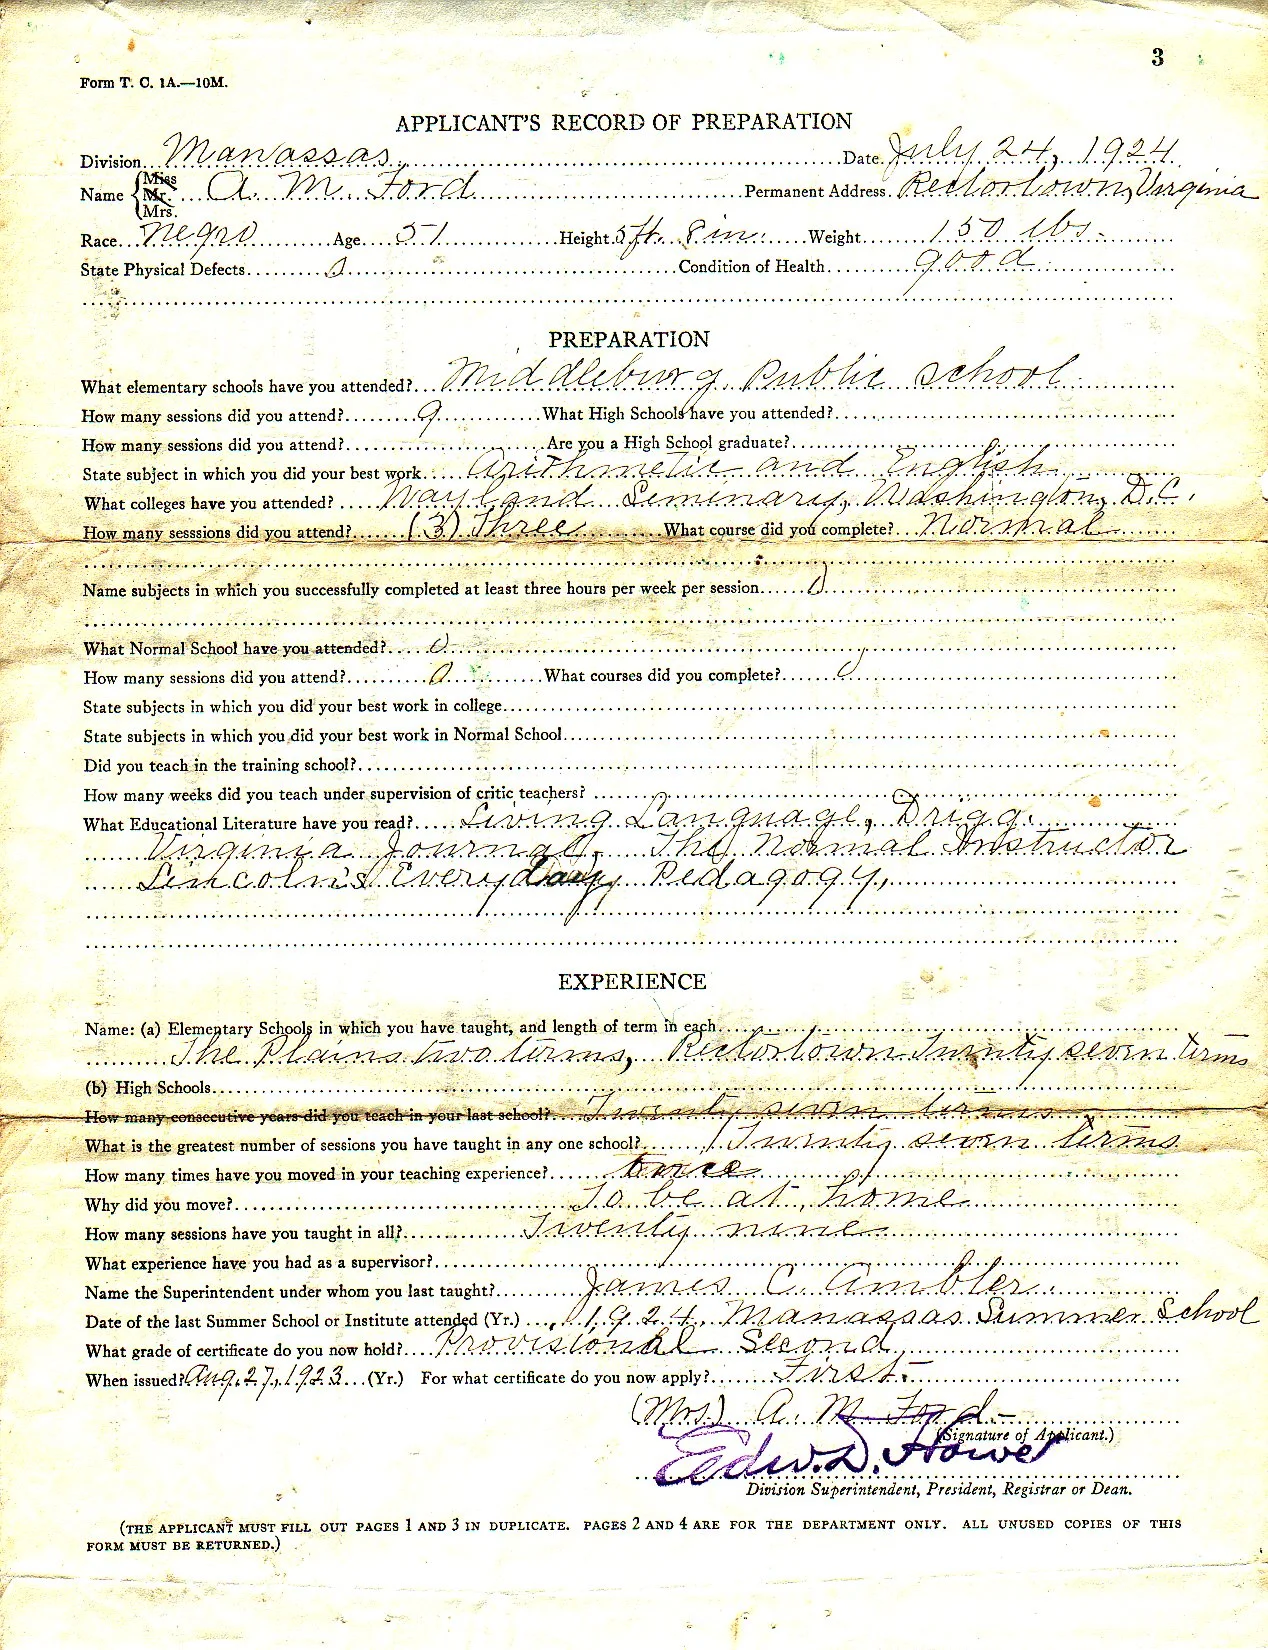 3
Form T. C. 1A.—10M.
APPLICANT'S RECORD OF PREPARATION
Division Manassas Date July 24, 1924
Miss
Name Mr. A. M. Ford Permanent Address Rectortown, Virginia
Mrs.
Race Negro Age 51 Height 5ft. 8 in. Weight 150 lbs.
State Physical Defects 0 Condition of Health good
PREPARATION
What elementary schools have you attended? Middleburg Public School
How many sessions did you attend? 9 What High Schools have you attended?
How many sessions did you attend? Are you a High School graduate?
State subject in which you did your best work Arithmetic and English
What colleges have you attended? Wayland Seminary, Washington, D.C.
How many sesssions did you attend? (3) Three What course did you complete? Normal
Name subjects in which you successfully completed at least three hours per week per session 0
What Normal School have you attended? 0
How many sessions did you attend? 0 What courses did you complete? 0
State subjects in which you did your best work in college
State subjects in which you did your best work in Normal School
Did you teach in the training school?
How many weeks did you teach under supervision of critic teachers?
What Educational Literature have you read? Living Language, Drigg.
Virginia Journal, The Normal Instructor
Lincoln's Everyday Pedagogy,
EXPERIENCE
Name: (a) Elementary Schools in which you have taught, and length of term in each
The Plains two terms, Rectortown Twenty seven terms
(b) High Schools
How many consecutive years did you teach in your last school? Twenty seven terms
What is the greatest number of sessions you have taught in any one school? Twenty seven terms
How many times have you moved in your teaching experience? once
Why did you move? To be at home
How many sessions have you taught in all? Twenty nine
What experience have you had as a supervisor?
Name the Superintendent under whom you last taught? James C. Ambler.
Date of the last Summer School or Institute attended (Yr.) 1924, Manassas Summer School
What grade of certificate do you now hold? Provisional Second
When issued? Aug. 27, 1923 (Yr.) For what certificate do you now apply? First.
(Mrs.) A. M. Ford.
(Signature of Applicant.)
Edw. D. Howe
Division Superintendent, President, Registrar or Dean.
(THE APPLICANT MUST FILL OUT PAGES 1 AND 3 IN DUPLICATE. PAGES 2 AND 4 ARE FOR THE DEPARTMENT ONLY. ALL UNUSED COPIES OF THIS
FORM MUST BE RETURNED.)